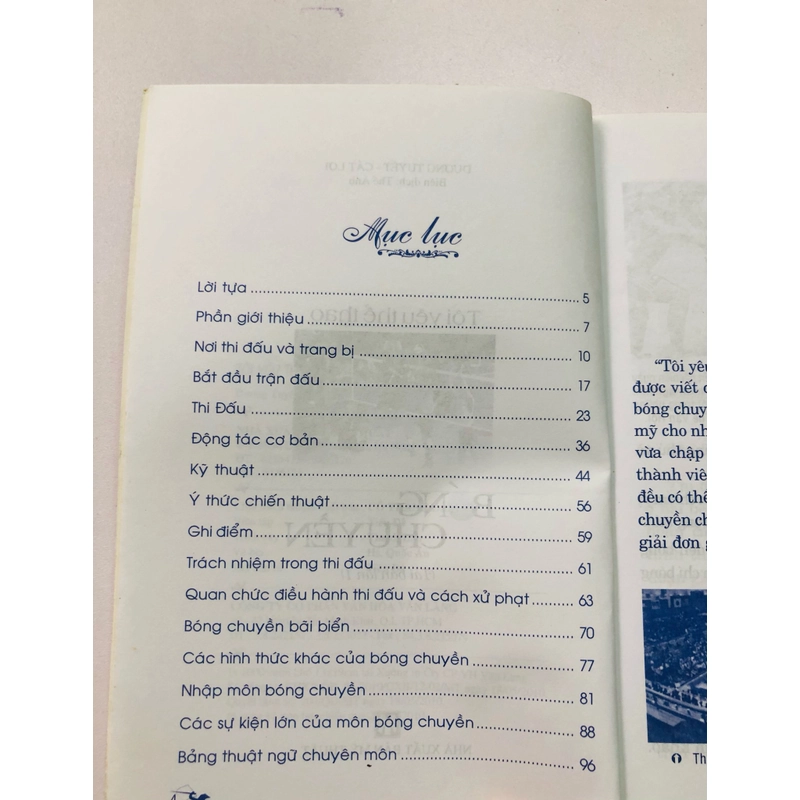 Mục lục
Lời tựa 5
Phần giới thiệu 7
Nơi thi đấu và trang bị 10
Bắt đầu trận đấu 17
Thi Đấu 23
Động tác cơ bản 36
Kỹ thuật 44
Ý thức chiến thuật 56
Ghi điểm 59
Trách nhiệm trong thi đấu 61
Quan chức điều hành thi đấu và cách xử phạt 63
Bóng chuyền bãi biển 70
Các hình thức khác của bóng chuyền 77
Nhập môn bóng chuyền 81
Các sự kiện lớn của môn bóng chuyền 88
Bảng thuật ngữ chuyên môn 96
4
“Tôi yêu
được viết
bóng chuy
mỹ cho nh
vừa chập
thành viên
đều có thể
chuyền ch
giải đơn
Th